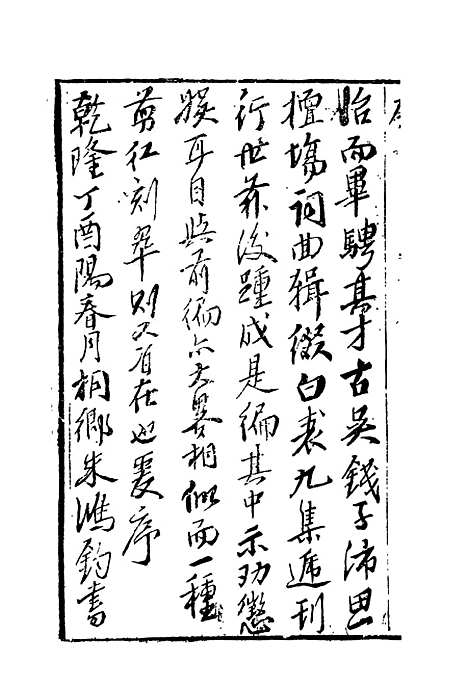 序
怡而畢騁其才古吳錢子沛思
擅塲詞曲輯綴白裘九集遞刊
行世茲復踵成是編其中示劝懲
娱耳目與前編亦大畧相似而一種
剪红刻翠则又有在也爰序
乾隆丁酉陽春月桐鄉朱鴻鈞書